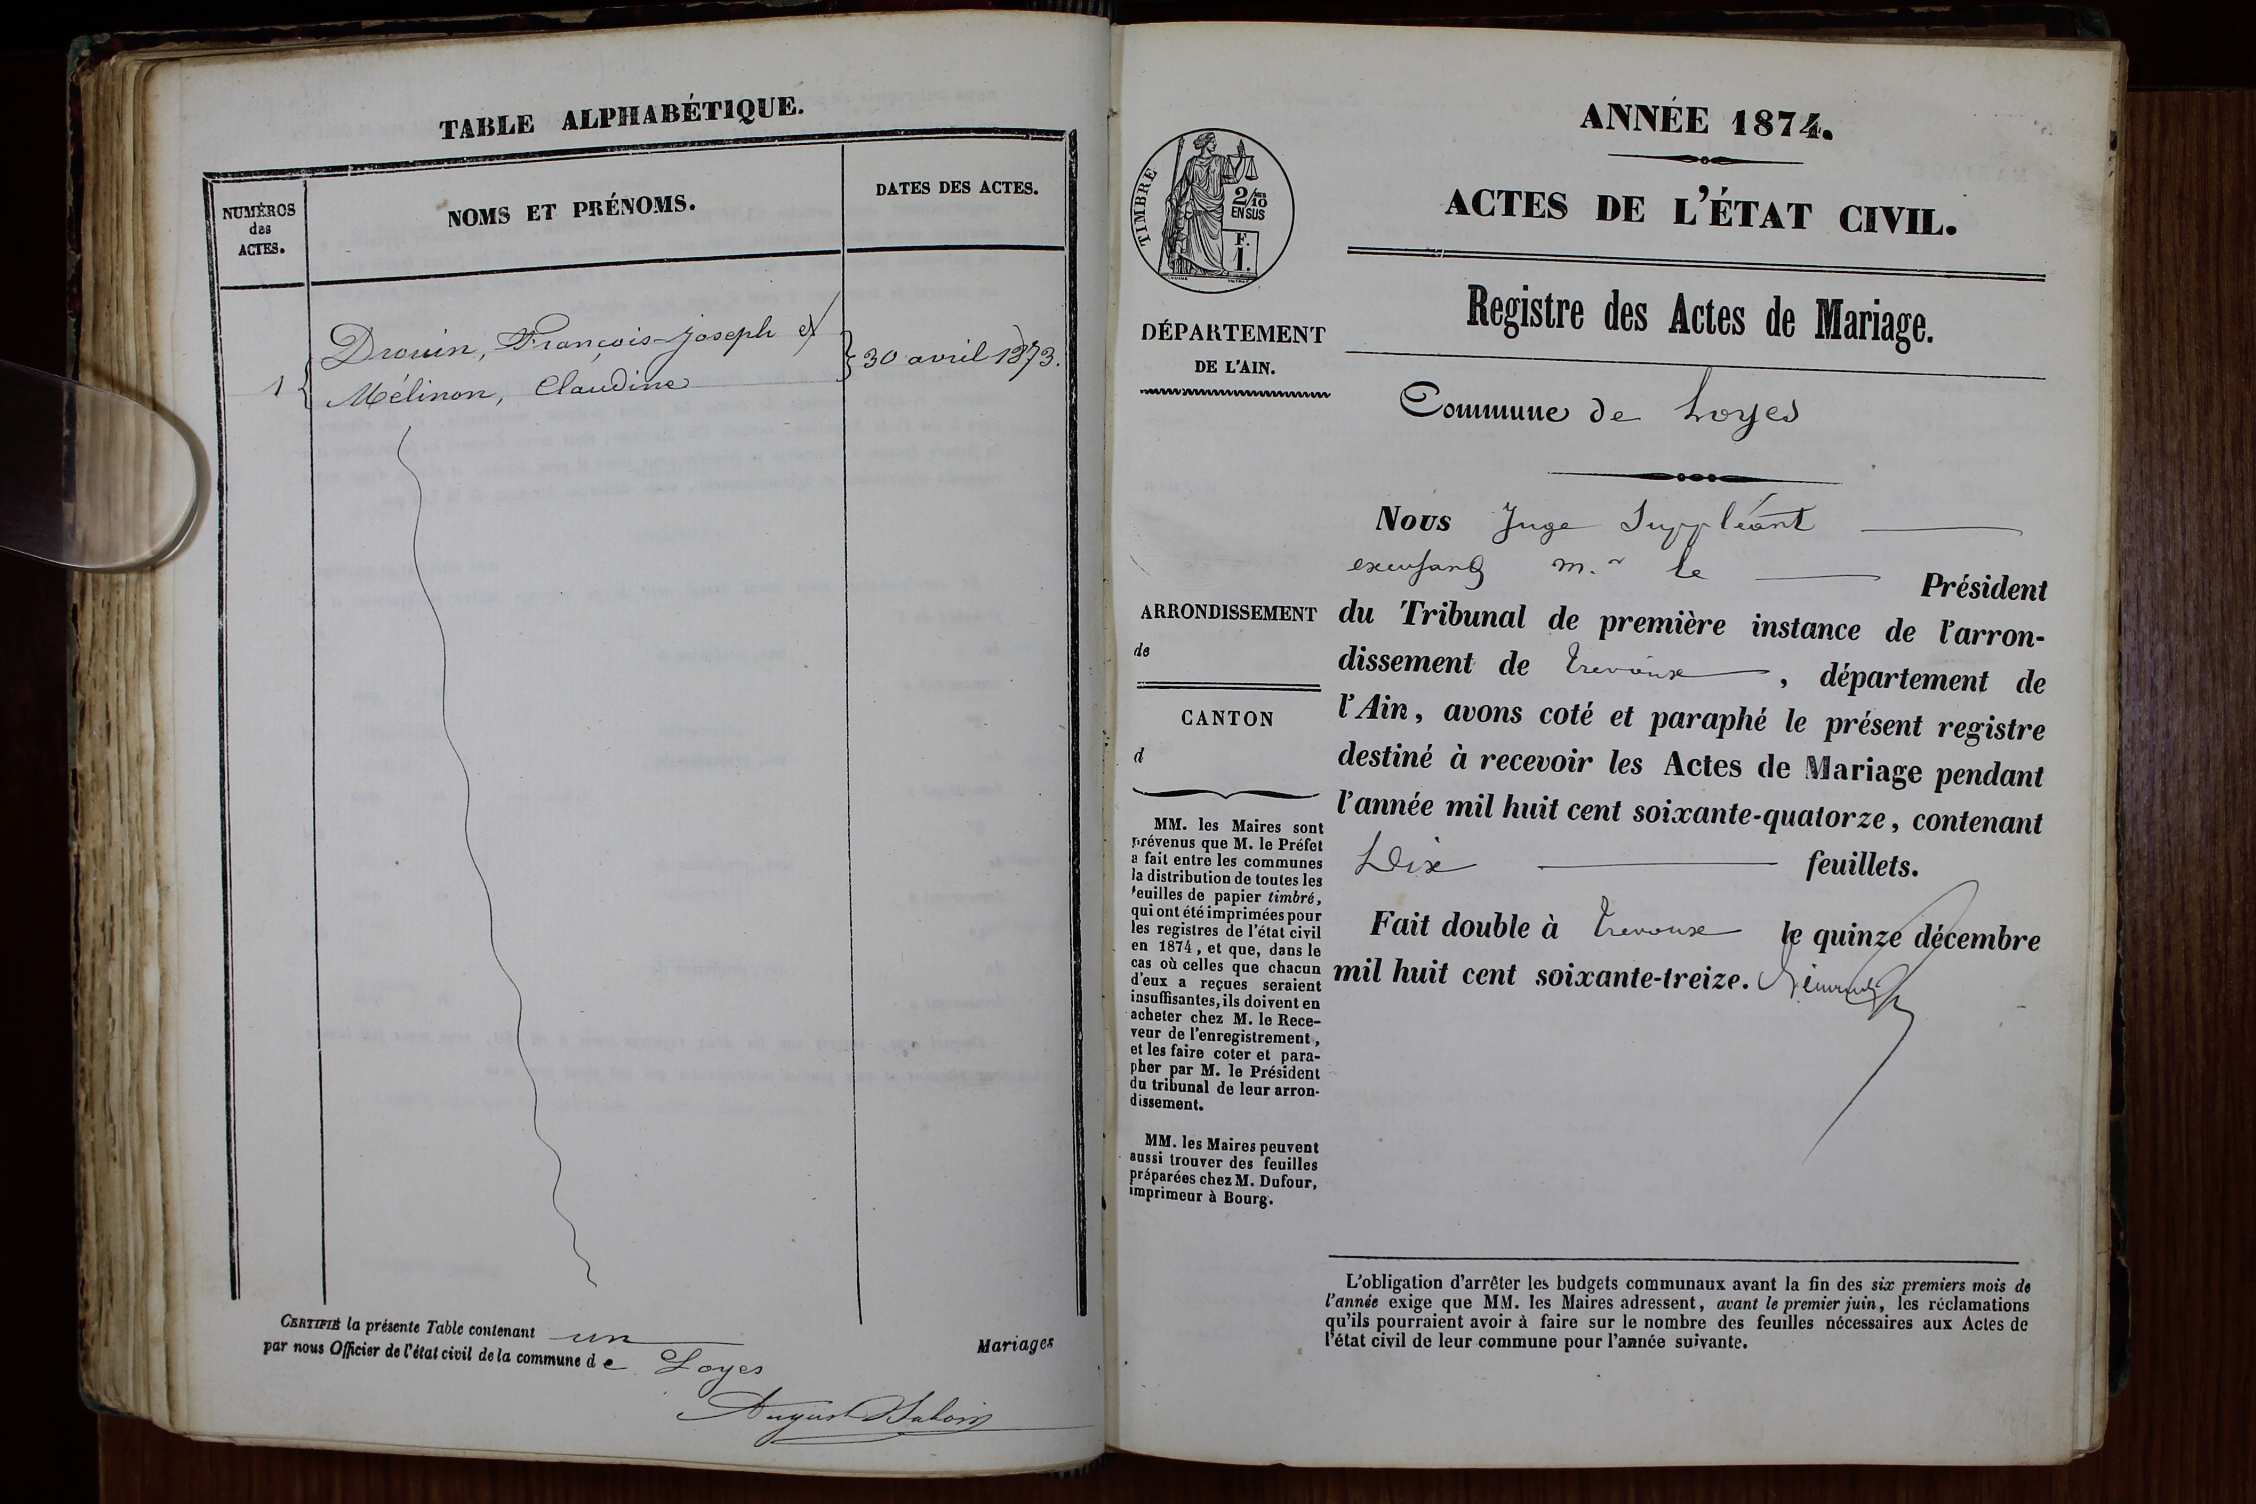 TABLE ALPHABÉTIQUE.
NUMÉROS
des
ACTES.
NOMS ET PRÉNOMS.
DATES DES ACTES.
Drouin, François-Joseph et
1
Mélinon, Claudine
30 avril 1873.
CERTIFIÉ la présente Table contenant un
Mariages
par nous Officier de l'état civil de la commune de Loyes
ANNÉE 1874.
ACTES DE L'ÉTAT CIVIL.
TIMBRE
2/10
EN SUS
F.
1.
Registre des Actes de Mariage.
DÉPARTEMENT
DE L'AIN.
Commune de Loyes
ARRONDISSEMENT
de
CANTON
d
MM. les Maires sont
prévenus que M. le Préfet
a fait entre les communes
la distribution de toutes les
feuilles de papier timbré,
qui ont été imprimées pour
les registres de l'état civil
en 1874, et que, dans le
cas où celles que chacun
d'eux a reçues seraient
insuffisantes, ils doivent en
acheter chez M. le Rece-
veur de l'enregistrement,
et les faire coter et para-
pher par M. le Président
du tribunal de leur arron-
dissement.
MM. les Maires peuvent
aussi trouver des feuilles
préparées chez M. Dufour,
imprimeur à Bourg.
Nous Juge Suppléant
m.r le Président
du Tribunal de première instance de l'arron-
dissement de Trevoux, département de
l'Ain, avons coté et paraphé le présent registre
destiné à recevoir les Actes de Mariage pendant
l'année mil huit cent soixante-quatorze, contenant
Dix feuillets.
Fait double à Trevoux le quinze décembre
mil huit cent soixante-treize.
L'obligation d'arrêter les budgets communaux avant la fin des six premiers mois de
l'année exige que MM. les Maires adressent, avant le premier juin, les réclamations
qu'ils pourraient avoir à faire sur le nombre des feuilles nécessaires aux Actes de
l'état civil de leur commune pour l'année suivante.